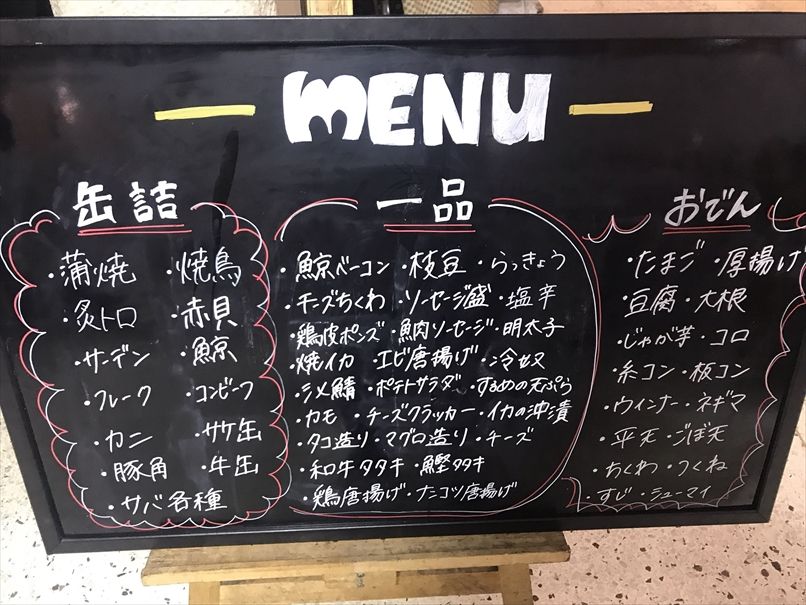 MENU
缶詰
・蒲焼 ・焼鳥
・炙トロ ・赤貝
・サーデン ・鯨
・フレーク ・コンビーフ
・カニ ・サケ缶
・豚角 ・牛缶
・サバ各種
一品
・鯨ベーコン ・枝豆 ・らっきょう
・チーズちくわ ・ソーセージ盛 ・塩辛
・鶏皮ポンズ ・魚肉ソーセージ ・明太子
・焼イカ ・エビ唐揚げ ・冷奴
・シメ鯖 ・ポテトサラダ ・するめの天ぷら
・カモ ・チーズクラッカー ・イカの沖漬
・タコ造り ・マグロ造り ・チーズ
・和牛タタキ ・鰹タタキ
・鶏唐揚げ ・ナンコツ唐揚げ
おでん
・たまご ・厚揚げ
・豆腐 ・大根
・じゃが芋 ・コロ
・糸コン ・板コン
・ウィンナー ・ネギマ
・平天 ・ごぼ天
・ちくわ ・つくね
・すじ ・シューマイ